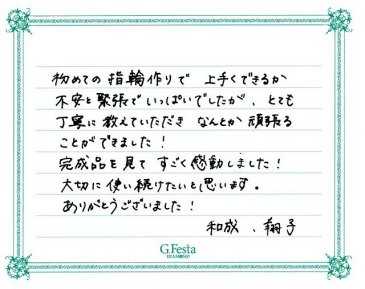 初めての指輪作りで 上手くできるか
不安と緊張でいっぱいでしたが、とても
丁寧に教えていただき なんとか頑張る
ことができました！
完成品を見て すごく感動しました！
大切に使い続けたいと思います。
ありがとうございました！
和成、翔子
G.Festa
DIAMOND